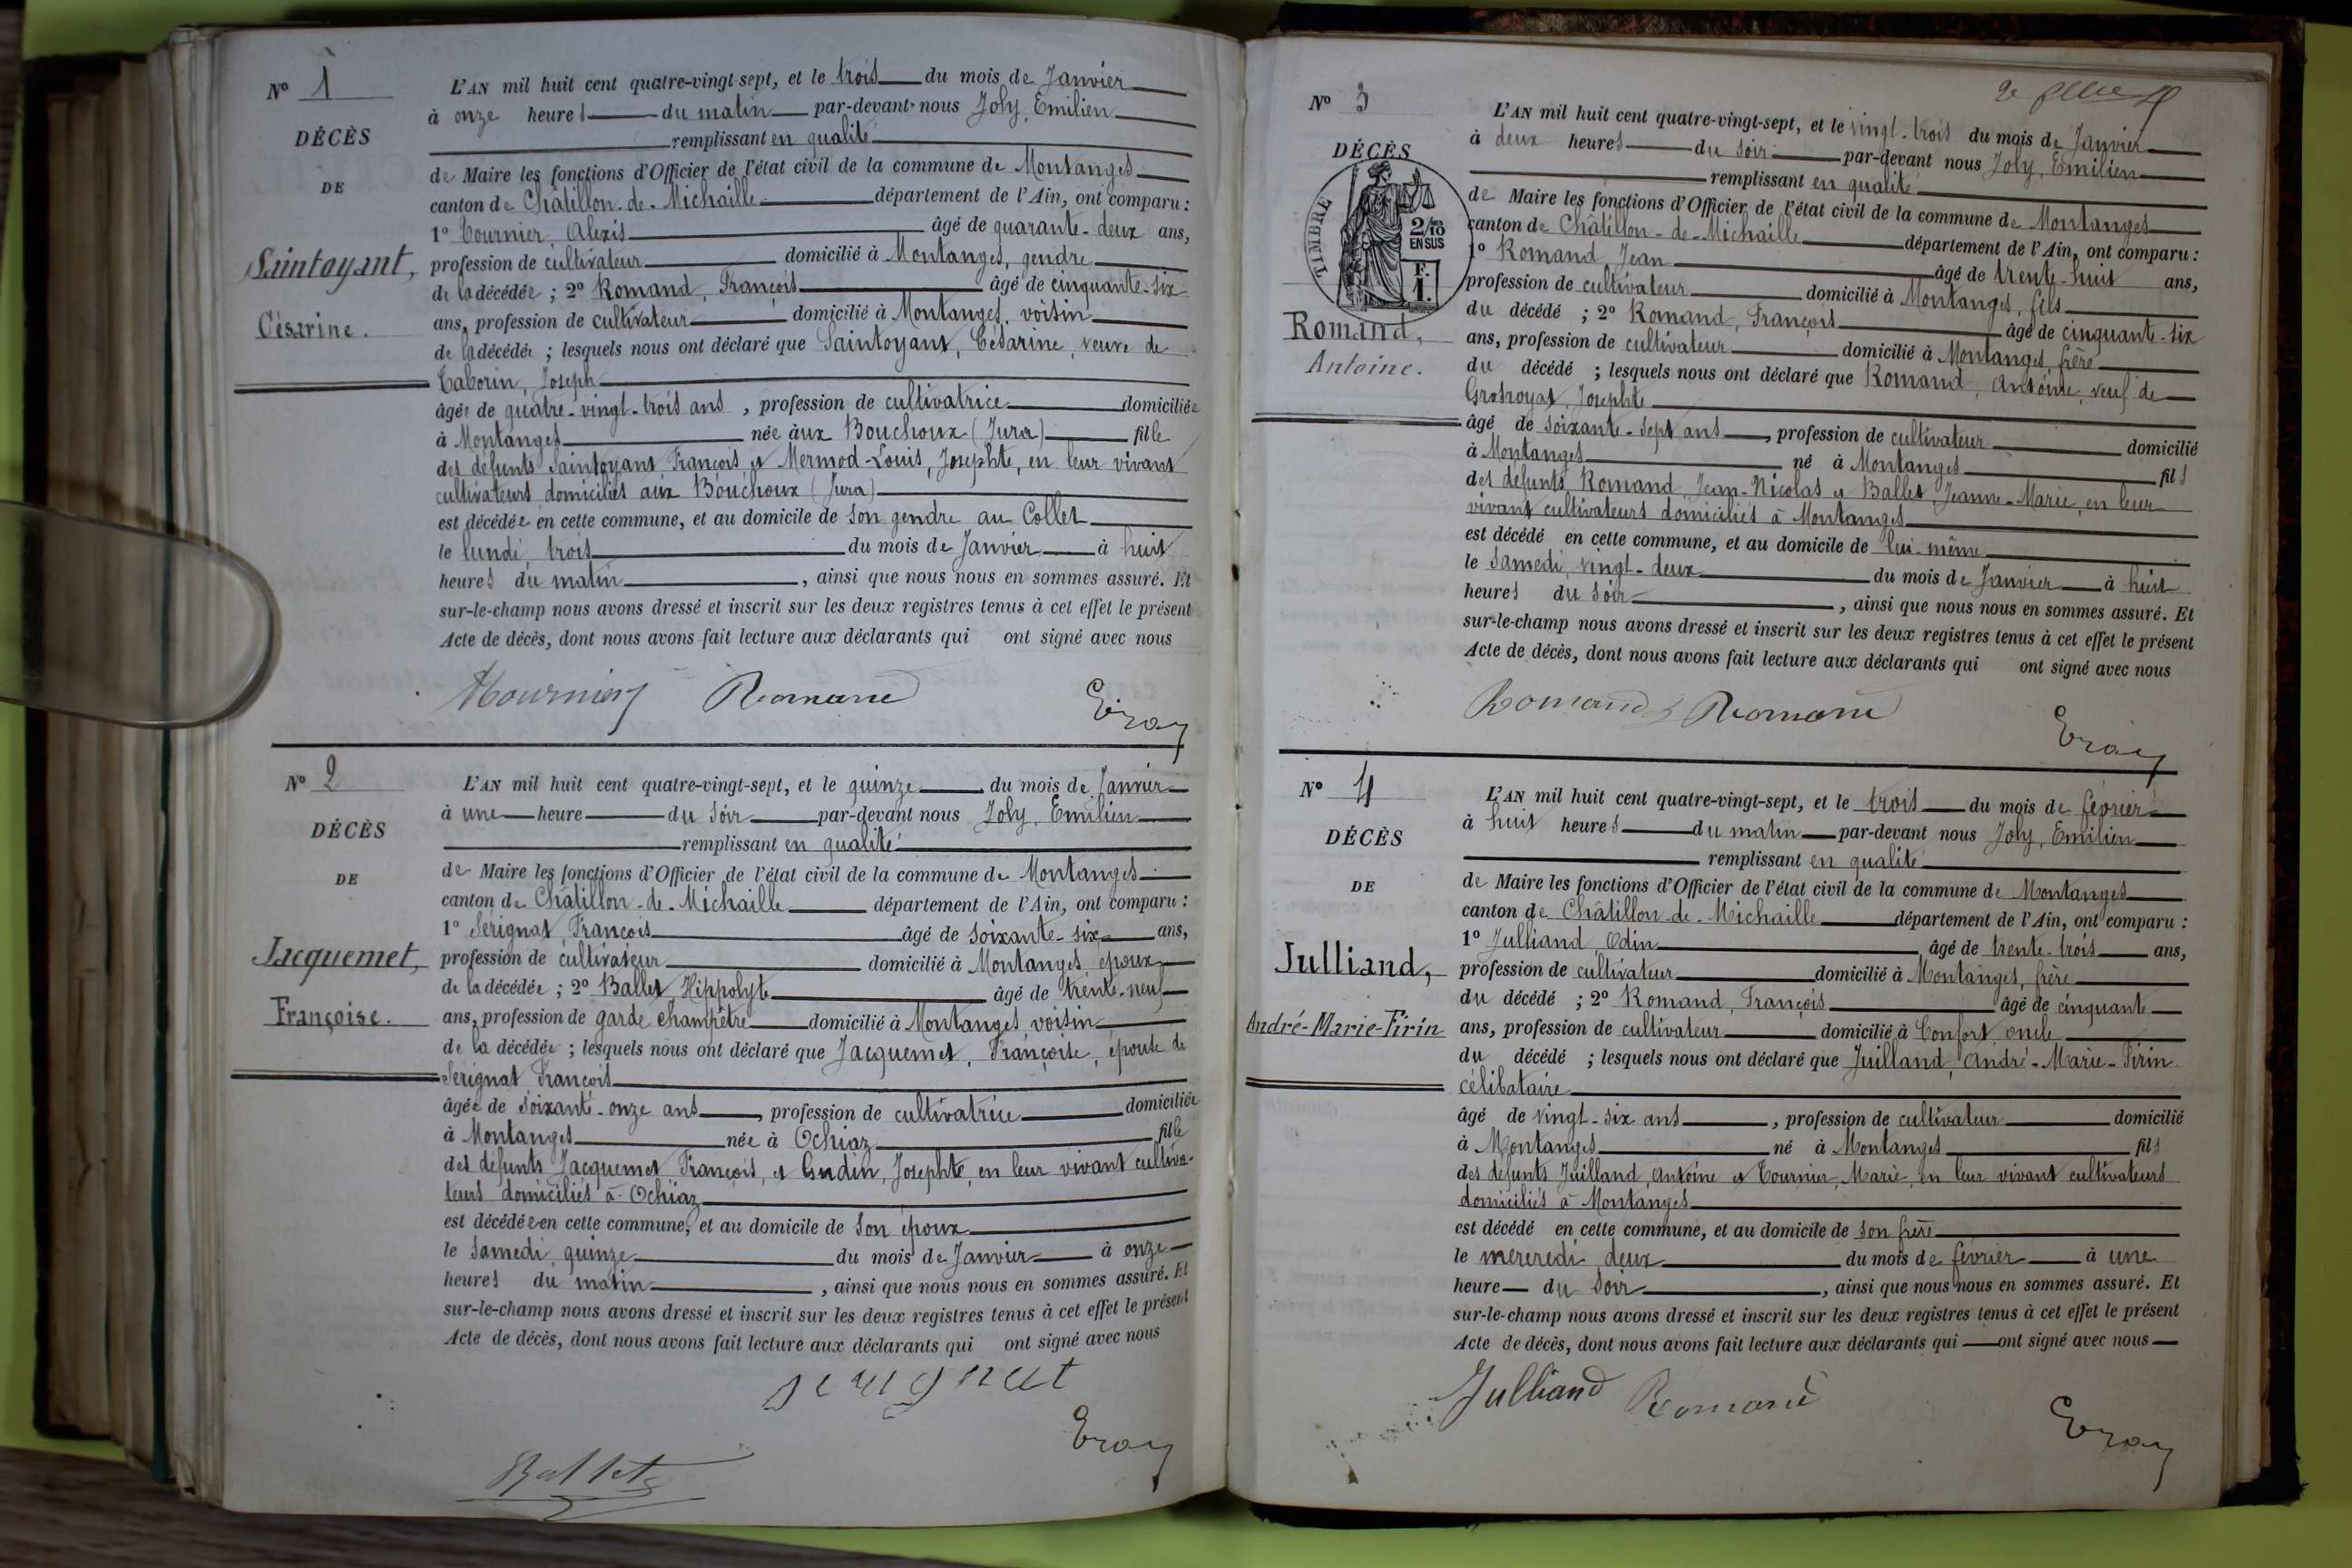 N° 1
DÉCÈS
DE
Saintoyant,
Césarine.
L'AN mil huit cent quatre-vingt-sept, et le trois du mois de Janvier
à onze heures du matin par-devant nous Joly, Emilien
remplissant en qualité
de Maire les fonctions d'Officier de l'état civil de la commune de Montanges
canton de Châtillon-de-Michaille département de l'Ain, ont comparu :
1° Tournier, Alexis âgé de quarante-deux ans,
profession de cultivateur domicilié à Montanges, gendre
de la décédée ; 2° Romand, François âgé de cinquante-six
ans, profession de cultivateur domicilié à Montanges, voisin
de la décédée ; lesquels nous ont déclaré que Saintoyant, Césarine, veuve de
Taborin, Joseph
âgée de quatre-vingt-trois ans, profession de cultivatrice domiciliée
à Montanges née aux Bouchoux (Jura) fille
des défunts Saintoyant François et Mermod-Louis, Josephte, en leur vivant
cultivateurs domiciliés aux Bouchoux (Jura)
est décédée en cette commune, et au domicile de son gendre au Collet
le lundi, trois du mois de Janvier à huit
heures du matin, ainsi que nous nous en sommes assuré. Et
sur-le-champ nous avons dressé et inscrit sur les deux registres tenus à cet effet le présent
Acte de décès, dont nous avons fait lecture aux déclarants qui ont signé avec nous
Tournier Romand
N° 2
DÉCÈS
DE
Jacquemet,
Françoise.
L'AN mil huit cent quatre-vingt-sept, et le quinze du mois de Janvier
à une heure du soir par-devant nous Joly, Emilien
remplissant en qualité
de Maire les fonctions d'Officier de l'état civil de la commune de Montanges
canton de Châtillon-de-Michaille département de l'Ain, ont comparu :
1° Sérignat, François âgé de soixante-six ans,
profession de cultivateur domicilié à Montanges, époux
de la décédée ; 2° Ballet Hippolyte âgé de trente-neuf
ans, profession de garde champêtre domicilié à Montanges voisin
de la décédée ; lesquels nous ont déclaré que Jacquemet, Françoise, épouse de
Sérignat, François
âgée de soixante-onze ans, profession de cultivatrice domiciliée
à Montanges née à Ochiaz fille
des défunts Jacquemet François, et Gudin, Josephte, en leur vivant cultiva-
teurs domiciliés à Ochiaz
est décédée en cette commune, et au domicile de son époux
le samedi, quinze du mois de Janvier à onze
heures du matin, ainsi que nous nous en sommes assuré. Et
sur-le-champ nous avons dressé et inscrit sur les deux registres tenus à cet effet le présent
Acte de décès, dont nous avons fait lecture aux déclarants qui ont signé avec nous
serignat
Ballet
N° 3
DÉCÈS
TIMBRE
2/10
EN SUS
F.
1.
Romand,
Antoine.
L'AN mil huit cent quatre-vingt-sept, et le vingt-trois du mois de Janvier
à deux heures du soir par-devant nous Joly, Emilien
remplissant en qualité
de Maire les fonctions d'Officier de l'état civil de la commune de Montanges
canton de Châtillon-de-Michaille département de l'Ain, ont comparu :
1° Romand, Jean âgé de trente-huit ans,
profession de cultivateur domicilié à Montanges, fils
du décédé ; 2° Romand, François âgé de cinquante-six
ans, profession de cultivateur domicilié à Montanges, frère
du décédé ; lesquels nous ont déclaré que Romand, Antoine, veuf de
Grosroyat, Josephte
âgé de soixante-sept ans, profession de cultivateur domicilié
à Montanges né à Montanges fils
des défunts Romand, Jean-Nicolas et Ballet Jeanne-Marie, en leur
vivant cultivateurs domiciliés à Montanges
est décédé en cette commune, et au domicile de lui-même
le samedi, vingt-deux du mois de Janvier à huit
heures du soir, ainsi que nous nous en sommes assuré. Et
sur-le-champ nous avons dressé et inscrit sur les deux registres tenus à cet effet le présent
Acte de décès, dont nous avons fait lecture aux déclarants qui ont signé avec nous
Romand Romand
N° 4
DÉCÈS
DE
Julliand,
André-Marie-Firin
L'AN mil huit cent quatre-vingt-sept, et le trois du mois de février
à huit heures du matin par-devant nous Joly, Emilien
remplissant en qualité
de Maire les fonctions d'Officier de l'état civil de la commune de Montanges
canton de Châtillon-de-Michaille département de l'Ain, ont comparu :
1° Julliand, Odin âgé de trente-trois ans,
profession de cultivateur domicilié à Montanges, frère
du décédé ; 2° Romand, François âgé de cinquante
ans, profession de cultivateur domicilié à Confort, oncle
du décédé ; lesquels nous ont déclaré que Juilland, André-Marie-Firin
célibataire
âgé de vingt-six ans, profession de cultivateur domicilié
à Montanges né à Montanges fils
des défunts Juilland, Antoine et Tournier, Marie, en leur vivant cultivateurs
domiciliés à Montanges
est décédé en cette commune, et au domicile de son frère
le mercredi deux du mois de février à une
heure du soir, ainsi que nous nous en sommes assuré. Et
sur-le-champ nous avons dressé et inscrit sur les deux registres tenus à cet effet le présent
Acte de décès, dont nous avons fait lecture aux déclarants qui ont signé avec nous
Julliand Romand